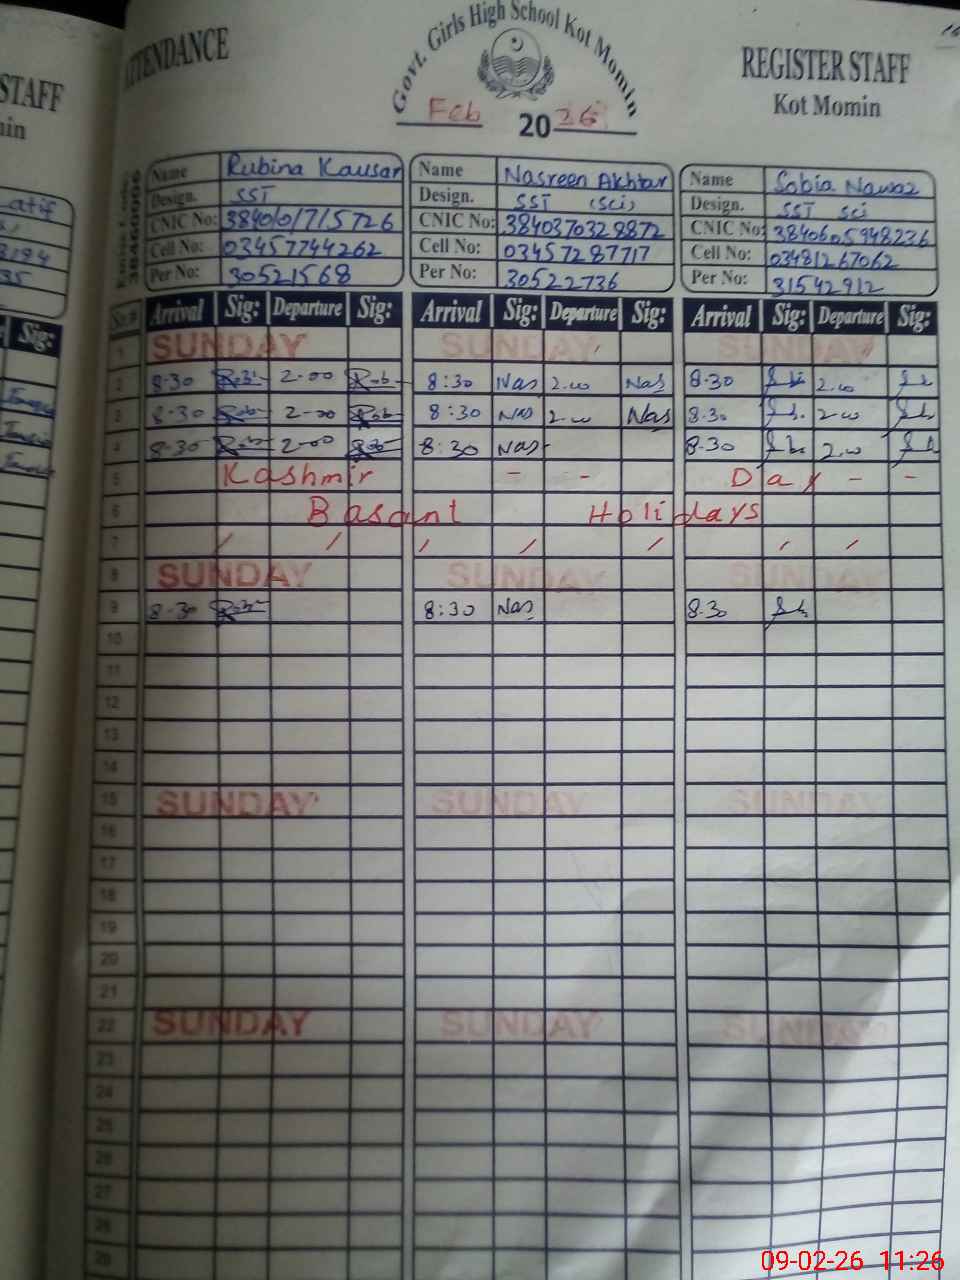 STAFF
ATTENDANCE
Govt. Girls High School Kot Momin
REGISTER STAFF
Kot Momin
Feb 2026
Name Rubina Kausar Name Nasreen Akhtar Name Sobia Nawaz
Design. SST Design. SST (Sci) Design. SST Sci
CNIC No: 3840101715726 CNIC No: 3840370328872 CNIC No: 3840605948236
Cell No: 03457744262 Cell No: 03457287717 Cell No: 03481267062
Per No: 30521568 Per No: 30522736 Per No: 31542912
Sig: Arrival Sig: Departure Sig: Arrival Sig: Departure Sig: Arrival Sig: Departure Sig:
1 SUNDAY SUNDAY SUNDAY
2 8-30 Rub 2-00 Rub 8:30 Nas 2.00 Nas 8-30 2.00
3 8-30 Rub 2-00 Rub 8:30 Nas 2.00 Nas 8.30 2-00
4 8-30 Rub 2-00 Rub 8:30 Nas 8.30 2.00
5 Kashmir - - Day - -
6 Basant Holidays
7
8 SUNDAY SUNDAY SUNDAY
9 8-30 Rub 8:30 Nas 8.30
10
11
12
13
14
15 SUNDAY SUNDAY SUNDAY
16
17
18
19
20
21
22 SUNDAY SUNDAY SUNDAY
23
24
25
26
27
28
09-02-26 11:26